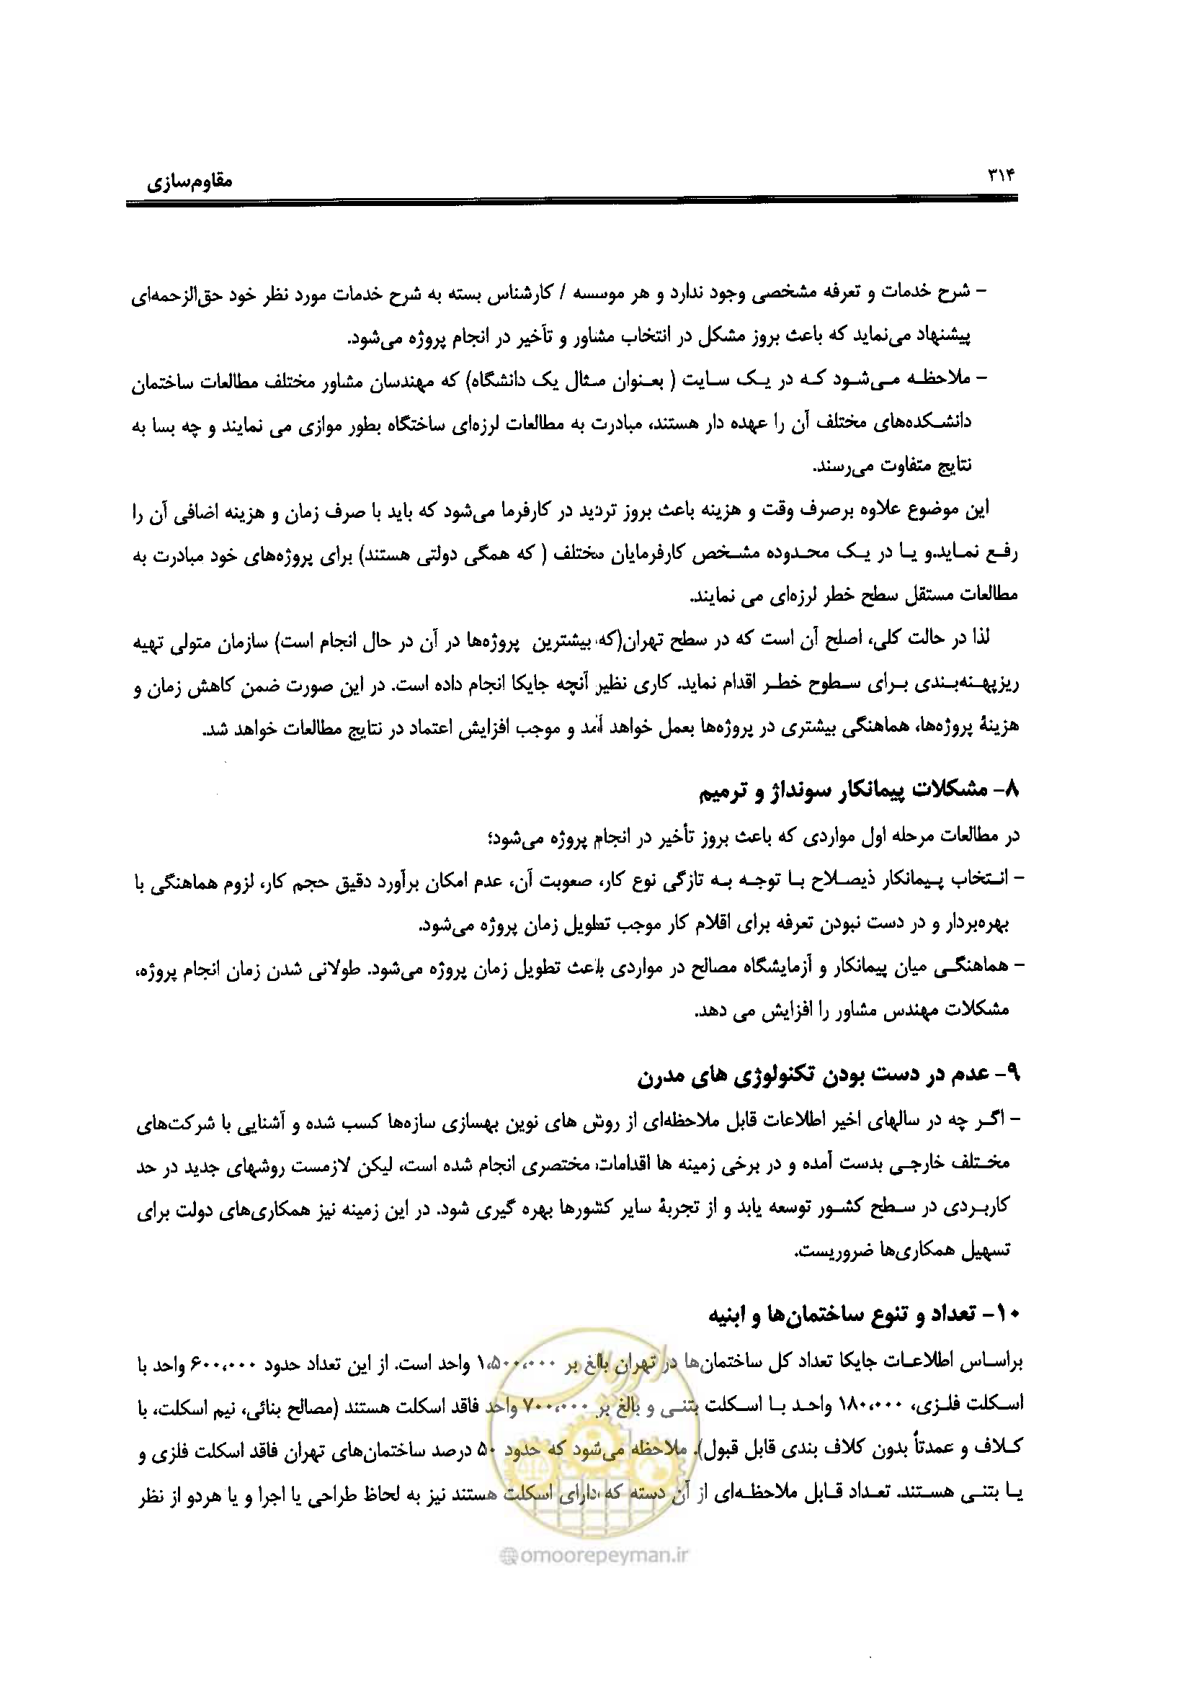 ۳۱۴
مقاوم‌سازی
- شرح خدمات و تعرفه مشخصی وجود ندارد و هر موسسه / کارشناس بسته به شرح خدمات مورد نظر خود حق‌الزحمه‌ای
پیشنهاد می‌نماید که باعث بروز مشکل در انتخاب مشاور و تأخیر در انجام پروژه می‌شود.
- ملاحظه می‌شود که در یک سایت ( بعنوان مثال یک دانشگاه) که مهندسان مشاور مختلف مطالعات ساختمان
دانشکده‌های مختلف آن را عهده دار هستند، مبادرت به مطالعات لرزه‌ای ساختگاه بطور موازی می نمایند و چه بسا به
نتایج متفاوت می‌رسند.
این موضوع علاوه برصرف وقت و هزینه باعث بروز تردید در کارفرما می‌شود که باید با صرف زمان و هزینه اضافی آن را
رفع نماید.و یا در یک محدوده مشخص کارفرمایان مختلف ( که همگی دولتی هستند) برای پروژه‌های خود مبادرت به
مطالعات مستقل سطح خطر لرزه‌ای می نمایند.
لذا در حالت کلی، اصلح آن است که در سطح تهران(که بیشترین پروژه‌ها در آن در حال انجام است) سازمان متولی تهیه
ریزپهنه‌بندی برای سطوح خطر اقدام نماید. کاری نظیر آنچه جایکا انجام داده است. در این صورت ضمن کاهش زمان و
هزینهٔ پروژه‌ها، هماهنگی بیشتری در پروژه‌ها بعمل خواهد آمد و موجب افزایش اعتماد در نتایج مطالعات خواهد شد.
۸- مشکلات پیمانکار سونداژ و ترمیم
در مطالعات مرحله اول مواردی که باعث بروز تأخیر در انجام پروژه می‌شود؛
- انتخاب پیمانکار ذیصلاح با توجه به تازگی نوع کار، صعوبت آن، عدم امکان برآورد دقیق حجم کار، لزوم هماهنگی با
بهره‌بردار و در دست نبودن تعرفه برای اقلام کار موجب تطویل زمان پروژه می‌شود.
- هماهنگی میان پیمانکار و آزمایشگاه مصالح در مواردی باعث تطویل زمان پروژه می‌شود. طولانی شدن زمان انجام پروژه،
مشکلات مهندس مشاور را افزایش می دهد.
۹- عدم در دست بودن تکنولوژی های مدرن
- اگر چه در سالهای اخیر اطلاعات قابل ملاحظه‌ای از روش های نوین بهسازی سازه‌ها کسب شده و آشنایی با شرکت‌های
مختلف خارجی بدست آمده و در برخی زمینه ها اقدامات مختصری انجام شده است، لیکن لازمست روشهای جدید در حد
کاربردی در سطح کشور توسعه یابد و از تجربهٔ سایر کشورها بهره گیری شود. در این زمینه نیز همکاری‌های دولت برای
تسهیل همکاری‌ها ضروریست.
۱۰- تعداد و تنوع ساختمان‌ها و ابنیه
براساس اطلاعات جایکا تعداد کل ساختمان‌ها در تهران بالغ بر ۱،۵۰۰،۰۰۰ واحد است. از این تعداد حدود ۶۰۰،۰۰۰ واحد با
اسکلت فلزی، ۱۸۰،۰۰۰ واحد با اسکلت بتنی و بالغ بر ۷۰۰،۰۰۰ واحد فاقد اسکلت هستند (مصالح بنائی، نیم اسکلت، با
کلاف و عمدتاً بدون کلاف بندی قابل قبول). ملاحظه می‌شود که حدود ۵۰ درصد ساختمان‌های تهران فاقد اسکلت فلزی و
یا بتنی هستند. تعداد قابل ملاحظه‌ای از آن دسته که دارای اسکلت هستند نیز به لحاظ طراحی یا اجرا و یا هردو از نظر
@omoorepeyman.ir